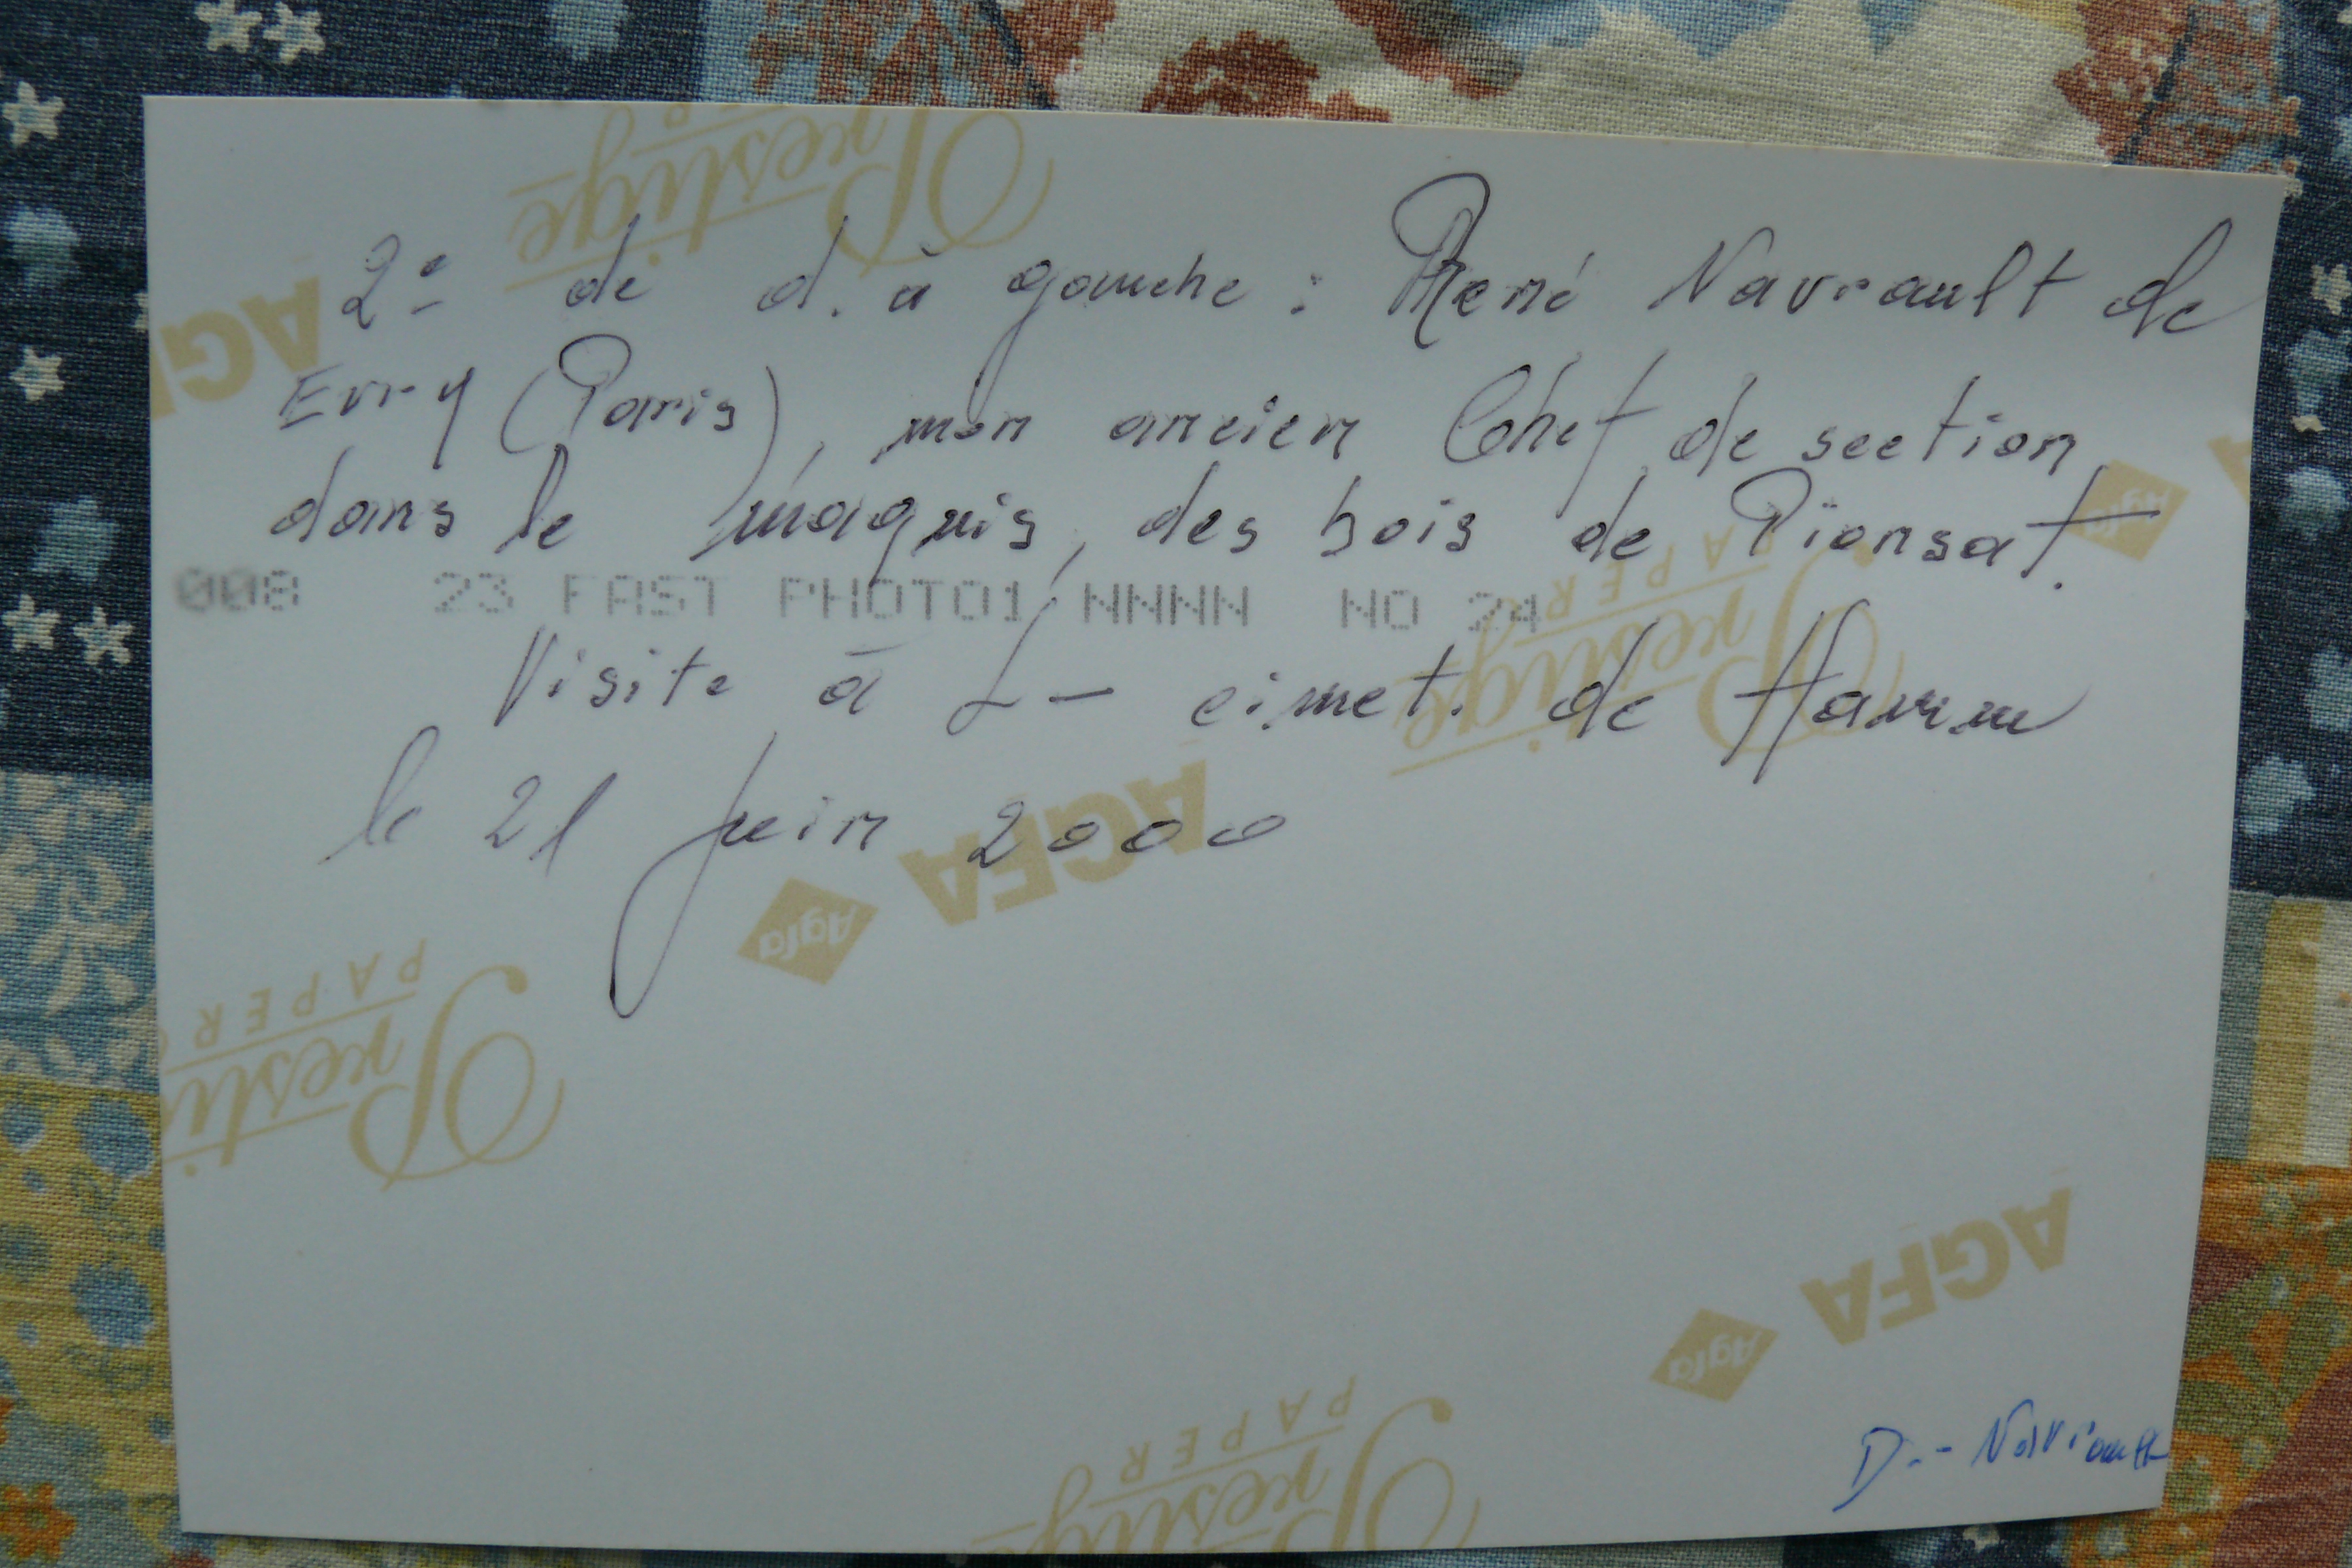 Prestige
AGFA
2e de d. à gauche : René Navrault de
Evry (Paris), mon ancien Chef de section
dans le maquis, des bois de Pionsat.
Agfa
008 23 FAST PHOTO1 NNNN NO 24
PAPER
Prestige
Visite à L- cimet. de
le 21 juin 2000
AGFA
Agfa
PAPER
Presti
AGFA
Agfa
PAPER
Prestige
D.- Navrault